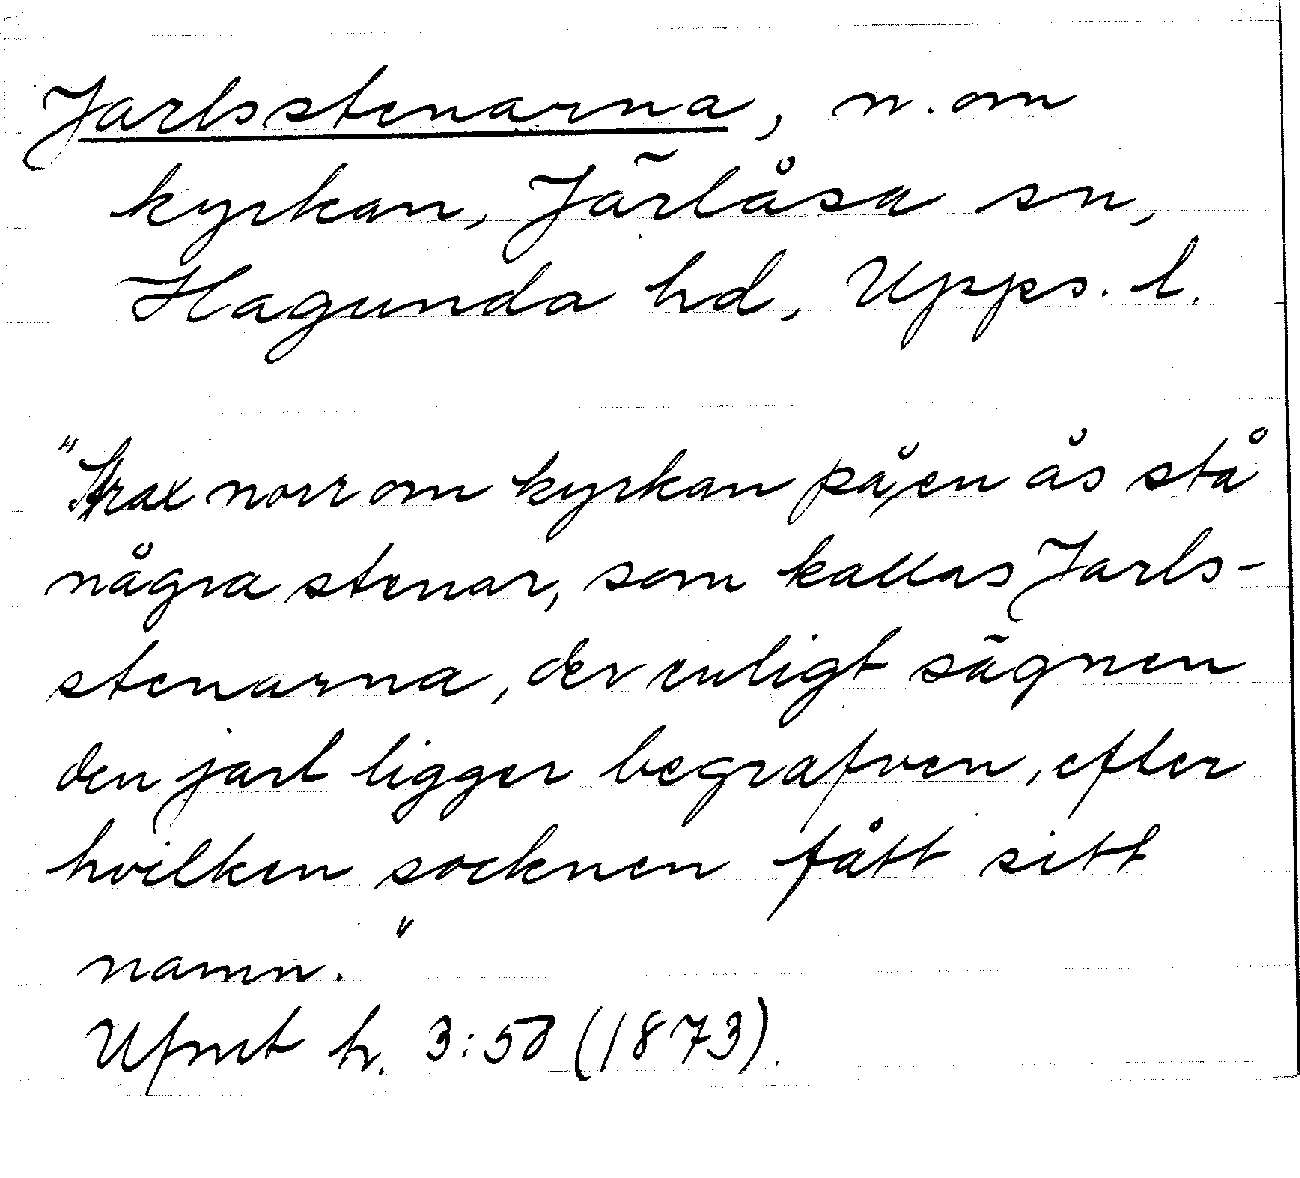 Jarlsstenarna, n. om
kyrkan, Järlåsa sn,
Hagunda hd, Upps. l.
"Strax norr om kyrkan på en ås stå
några stenar, som kallas Jarls-
stenarna, der enligt sägnen
den jarl ligger begrafven, efter
hvilken socknen fått sitt
namn."
Ufmt h. 3:50 (1873).